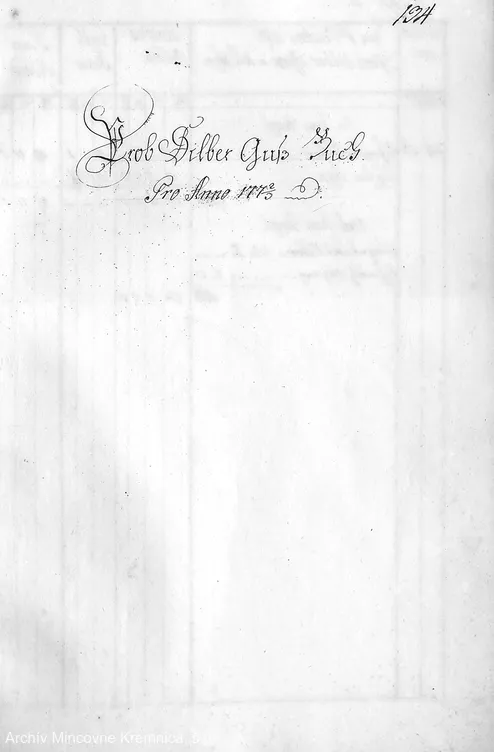 134
Prob Silber Guß Buch
Pro Anno 177
Archiv Mincovne Kremnica